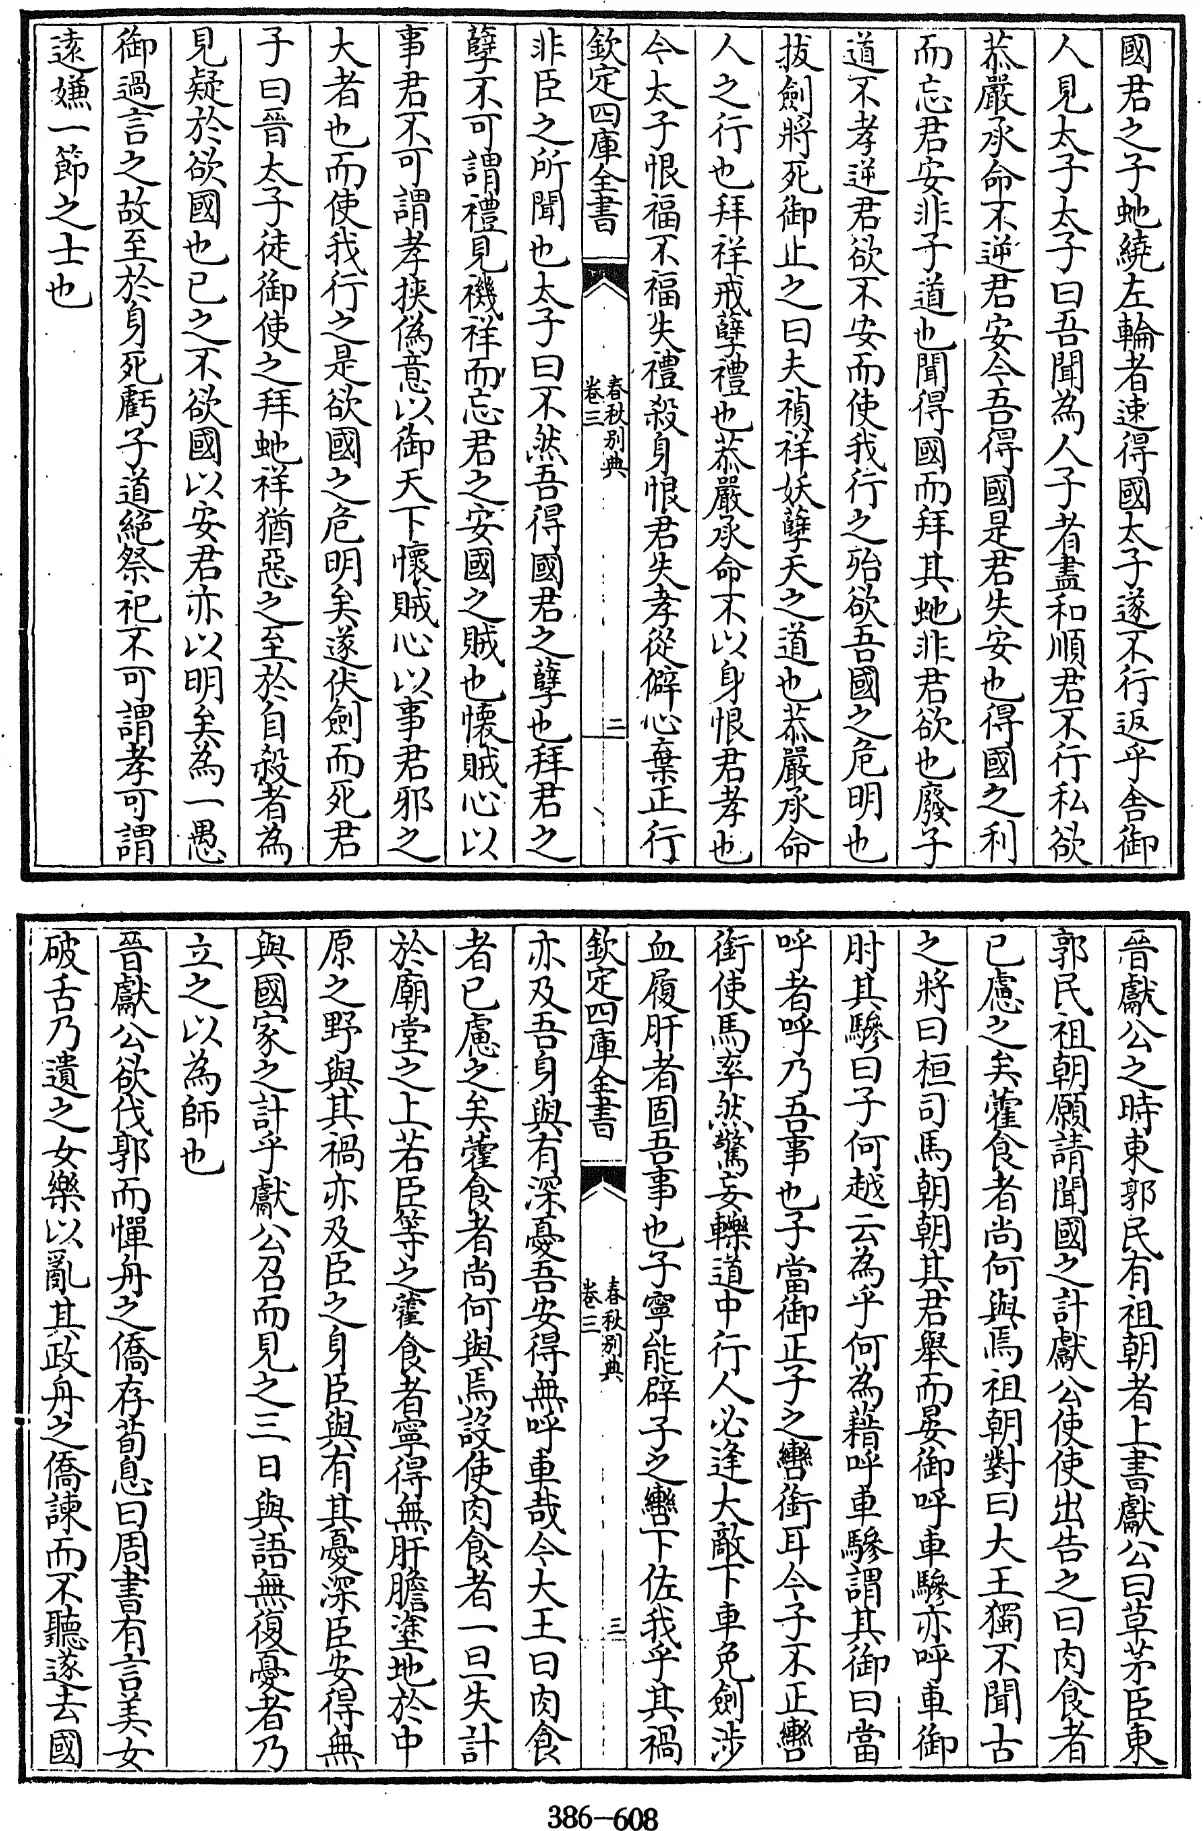 國君之子虵繞左輪者速得國太子遂不行返乎舍御
人見太子太子曰吾聞為人子者盡和順君不行私欲
恭嚴承命不逆君安今吾得國是君失安也得國之利
而忘君安非子道也聞得國而拜其虵非君欲也廢子
道不孝逆君欲不安而使我行之殆欲吾國之危明也
拔劍將死御止之曰夫禎祥妖孽天之道也恭嚴承命
人之行也拜祥戒孽禮也恭嚴承命不以身恨君孝也
今太子恨福不福失禮殺身恨君失孝從僻心棄正行
欽定四庫全書 春秋別典 卷三 二
非臣之所聞也太子曰不然吾得國君之孽也拜君之
孽不可謂禮見禨祥而忘君之安國之賊也懷賊心以
事君不可謂孝挾偽意以御天下懷賊心以事君邪之
大者也而使我行之是欲國之危明矣遂伏劍而死君
子曰晉太子徒御使之拜虵祥猶惡之至於自殺者為
見疑於欲國也已之不欲國以安君亦以明矣為一愚
御過言之故至於身死虧子道絶祭祀不可謂孝可謂
遠嫌一節之士也
晉獻公之時東郭民有祖朝者上書獻公曰草茅臣東
郭民祖朝願請聞國之計獻公使使出告之曰肉食者
已慮之矣藿食者尚何與焉祖朝對曰大王獨不聞古
之將曰桓司馬朝朝其君舉而晏御呼車驂亦呼車御
肘其驂曰子何越云為乎何為藉呼車驂謂其御曰當
呼者呼乃吾事也子當御正子之轡銜耳今子不正轡
銜使馬率然驚妄轢道中行人必逢大敵下車免劍涉
血履肝者固吾事也子寧能辟子之轡下佐我乎其禍
欽定四庫全書 春秋別典 卷三 三
亦及吾身與有深憂吾安得無呼車哉今大王曰肉食
者已慮之矣藿食者尚何與焉設使肉食者一旦失計
於廟堂之上若臣等之藿食者寧得無肝膽塗地於中
原之野與其禍亦及臣之身臣與有其憂深臣安得無
與國家之計乎獻公召而見之三日與語無復憂者乃
立之以為師也
晉獻公欲伐郭而憚舟之僑存荀息曰周書有言美女
破舌乃遺之女樂以亂其政舟之僑諫而不聽遂去國
386-608